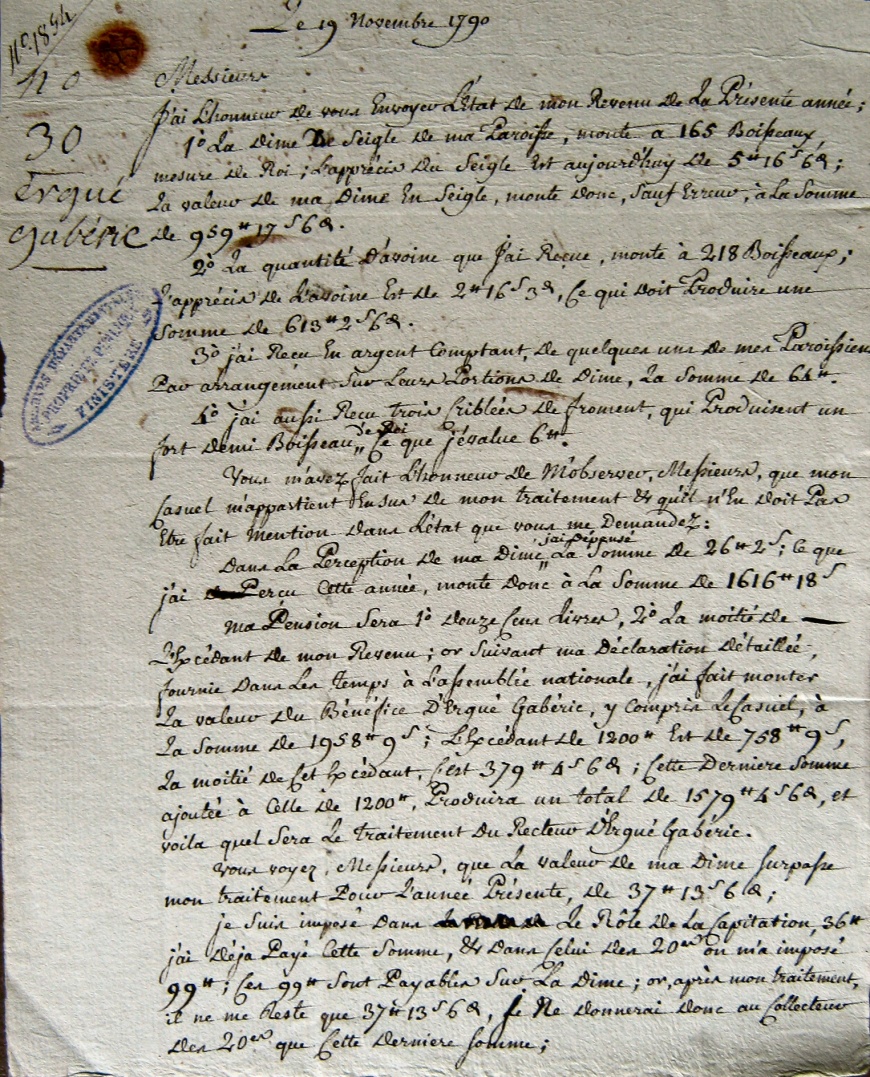 Le 19 Novembre 1790
N.o 1854
no
30
Ergué
gabéric
Messieurs
J'ai L'honneur de vous Envoyer L'Etat de mon Revenu de La Présente année;
1.o La dime De Seigle de ma Paroisse, monte a 165 Boisseaux,
mesure de Roi; L'apprécis du Seigle Est aujourdhuy de 5tt 16s 6d;
La valeur de ma Dime En Seigle, monte donc, Sauf Erreur, à La Somme
de 959tt 17s 6d.
2.o La quantité d'avoine que J'ai Reçue, monte à 218 Boisseaux;
L'apprécis de L'avoine Est de 2tt 16s 3d, Ce qui doit Produire une
Somme de 613tt 2s 6d.
ARCHIVES DÉPARTEMENTALES
PROPRIÉTÉ PUBLIQUE
FINISTÈRE
3.o j'ai Recu En argent Comptant, de quelques uns de mes Paroissiens
Par arrangement Sur Leurs Portions de Dime, La Somme de 64tt.
4.o j'ai aussi Recu trois Criblées de froment, qui Produisent un
fort demi Boisseau de Roi, Ce que j'évalue 6tt.
Vous m'avez fait L'honneur de M'observer, Messieurs, que mon
Casuel m'appartient En sus de mon traitement & qu'il n'En doit Pas
Etre fait Mention dans L'état que vous me Demandez:
Dans La Perception de ma Dime j'ai dépensé La Somme de 26tt 2s; Ce que
j'ai Percu Cette année, monte donc à La Somme de 1616tt 18s
Ma Pension Sera 1.o douze Cens Livres, 2.o La moitié de
L'Excédant de mon Revenu; or Suivant ma Déclaration détaillée,
fournie Dans Les temps à L'assemblée nationale, j'ai fait monter
La valeur du Bénéfice D'Ergué Gabéric, y Compris Le Casuel, à
La Somme de 1958tt 9s; L'Excédant de 1200tt Est de 758tt 9s,
La moitié de Cet Excédant, C'est 379tt 4s 6d; Cette Derniere Somme
ajoutée à Celle de 1200tt, Produira un total de 1579tt 4s 6d, et
voila quel Sera Le traitement du Recteur d'Ergué Gabéric.
Vous voyez, Messieurs, que La valeur de ma Dime Surpasse
mon traitement Pour L'année Présente, de 37tt 13s 6d;
je Suis imposé dans Le Rôle de La Capitation, 36tt
j'ai déja Payé Cette Somme, & dans Celui des 20es on m'a imposé
99tt; Ces 99tt Sont Payables Sur La Dime; or, après mon traitement,
il ne me Reste que 37tt 13s 6d, Je Ne donnerai donc au Collecteur
des 20es que Cette derniere Somme;